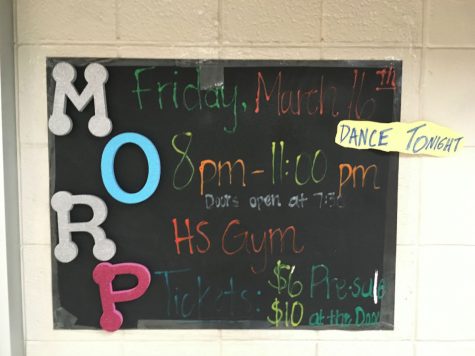 MORP
Friday, March 16th
DANCE TONIGHT
8pm-11:00 pm
Doors open at 7:30
HS Gym
Tickets: $6 Pre-sale
$10 at the Door